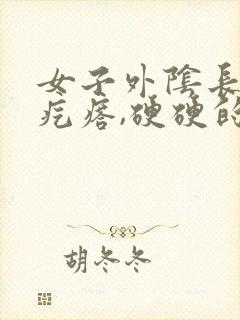 女子外陰長
疙瘩,硬硬的
胡冬冬